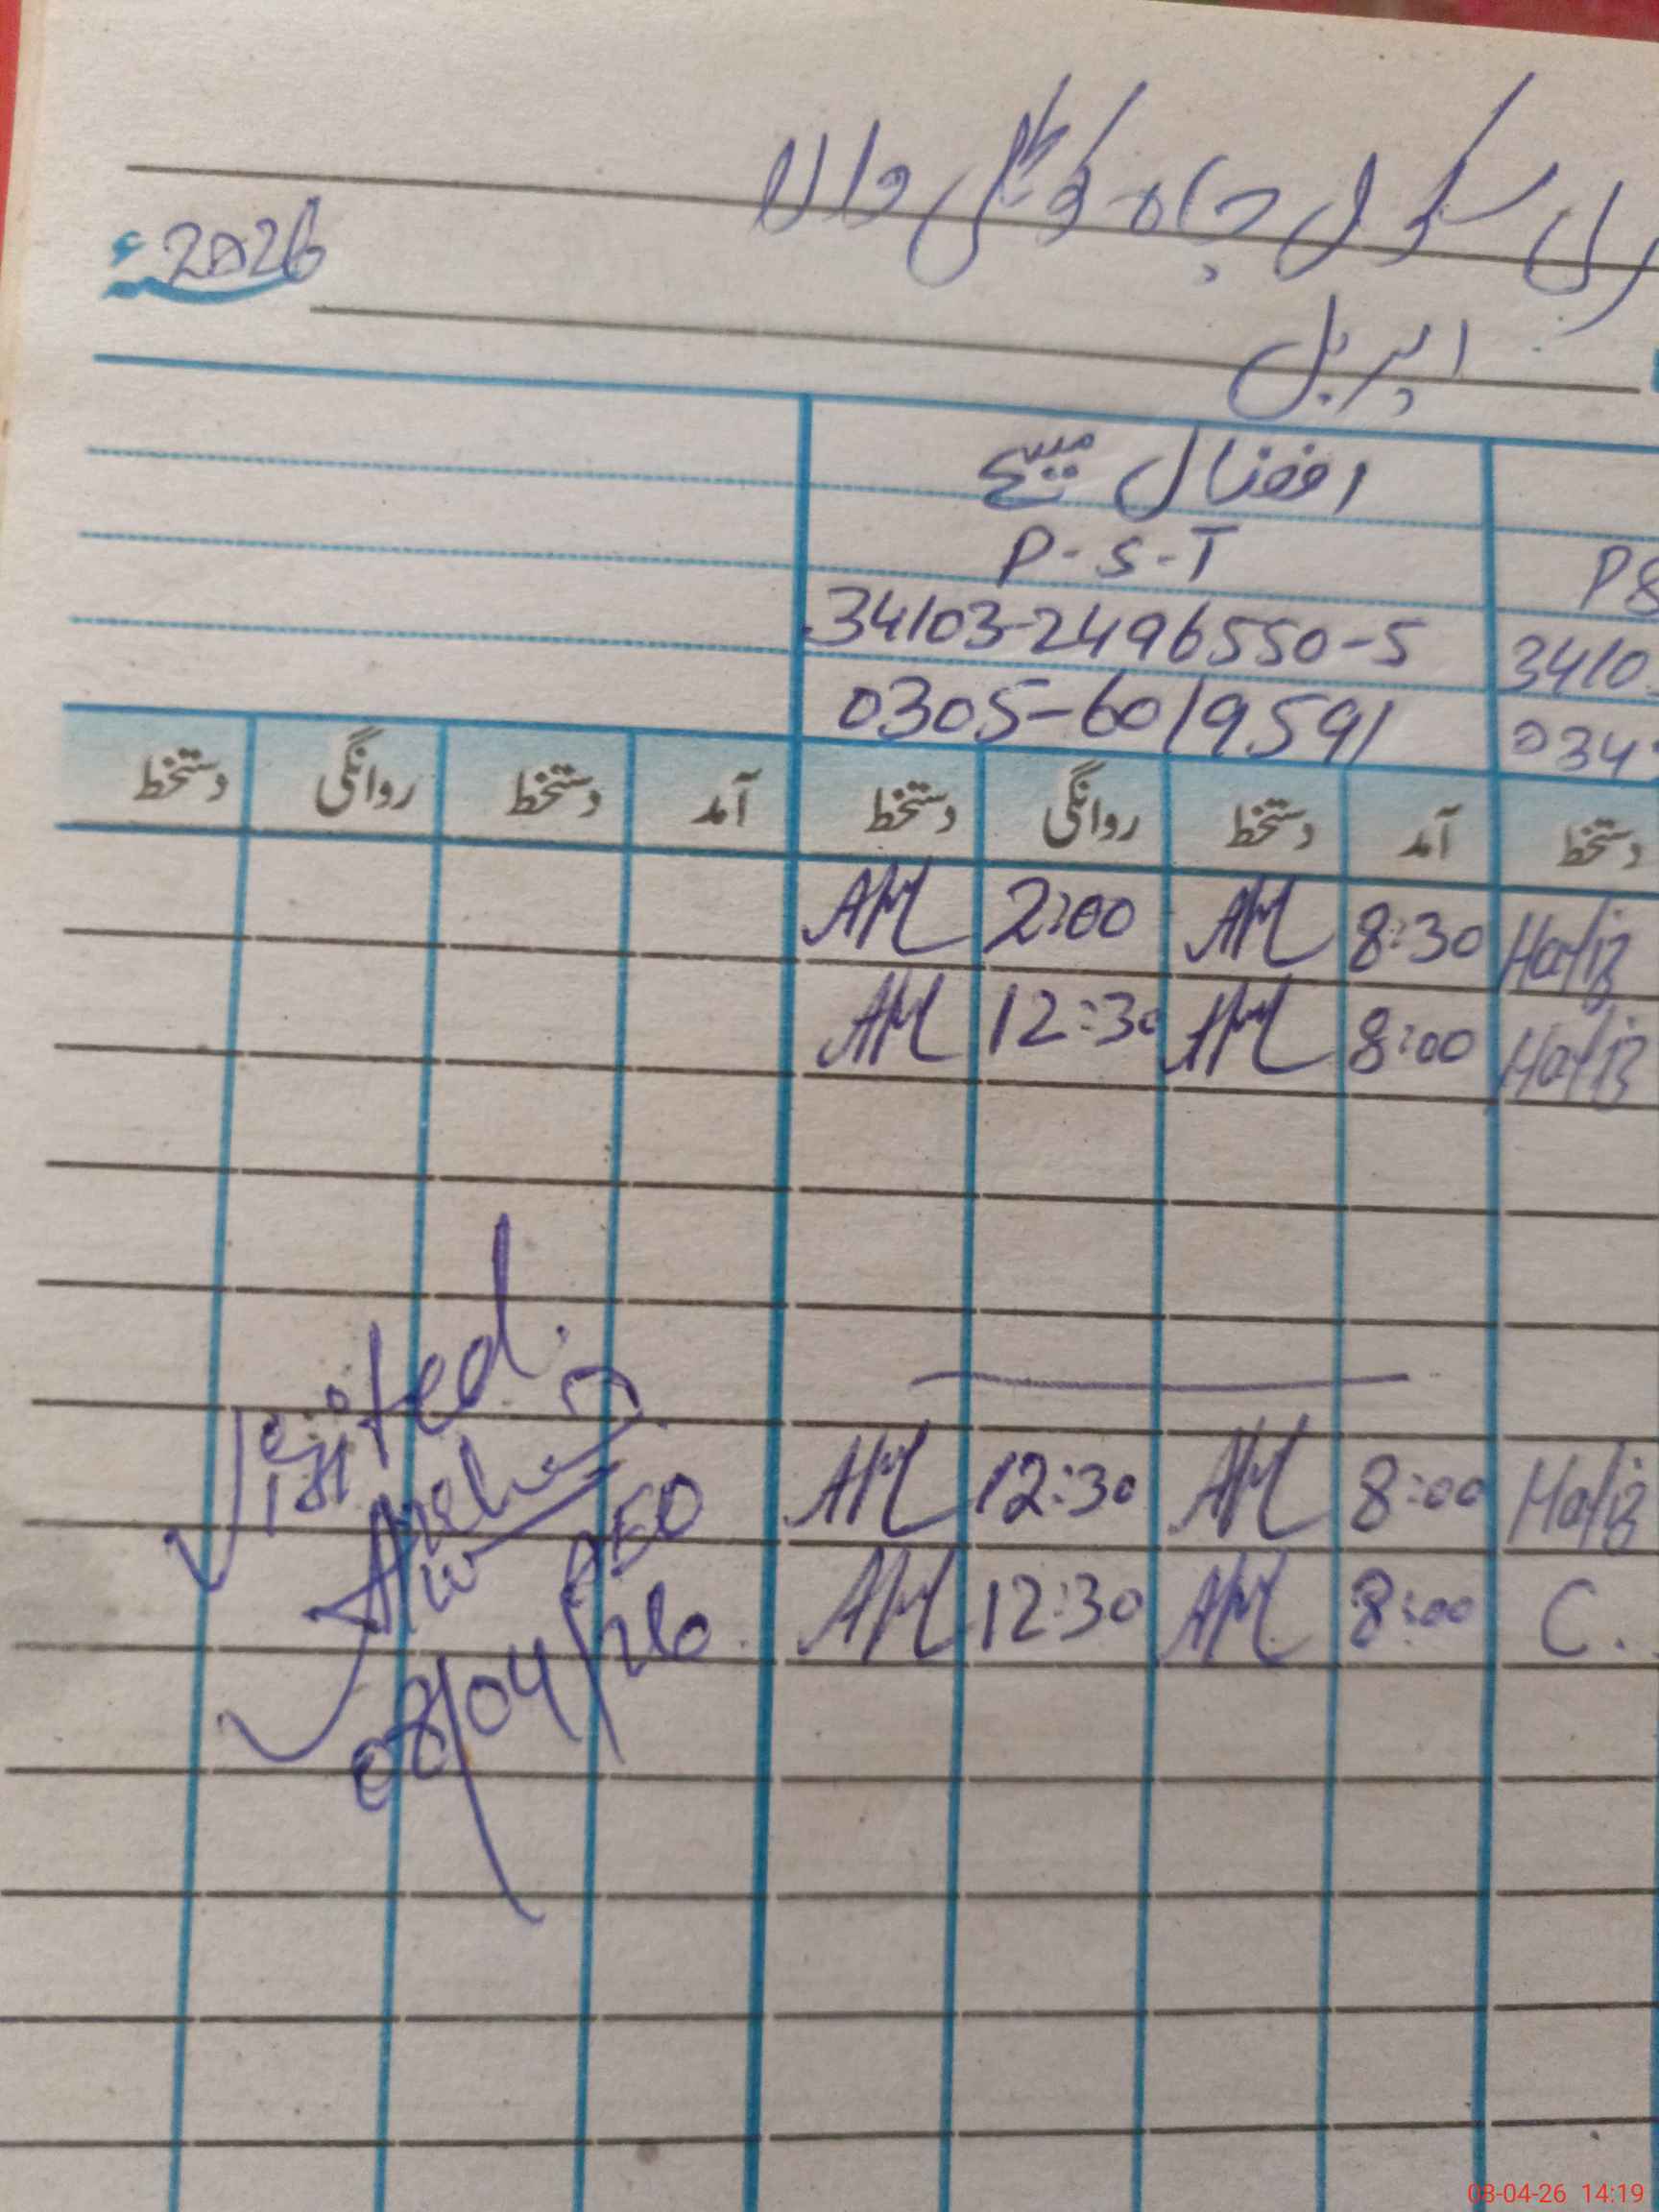 سکول چاہ کوٹلی والا
2026ء
اپریل
افضال مسیح
P-S-T
34103-2496550-5 3410
0305-6019591 034
دستخط آمد دستخط روانگی دستخط آمد دستخط روانگی دستخط
Hafiz 8:30 AM 2:00 AM
Hafiz 8:00 AM 12:30 AM
Hafiz 8:00 AM 12:30 AM
C. 8:00 AM 12:30 AM
Visited.
AEO
08/04/26.
08-04-26 14:19